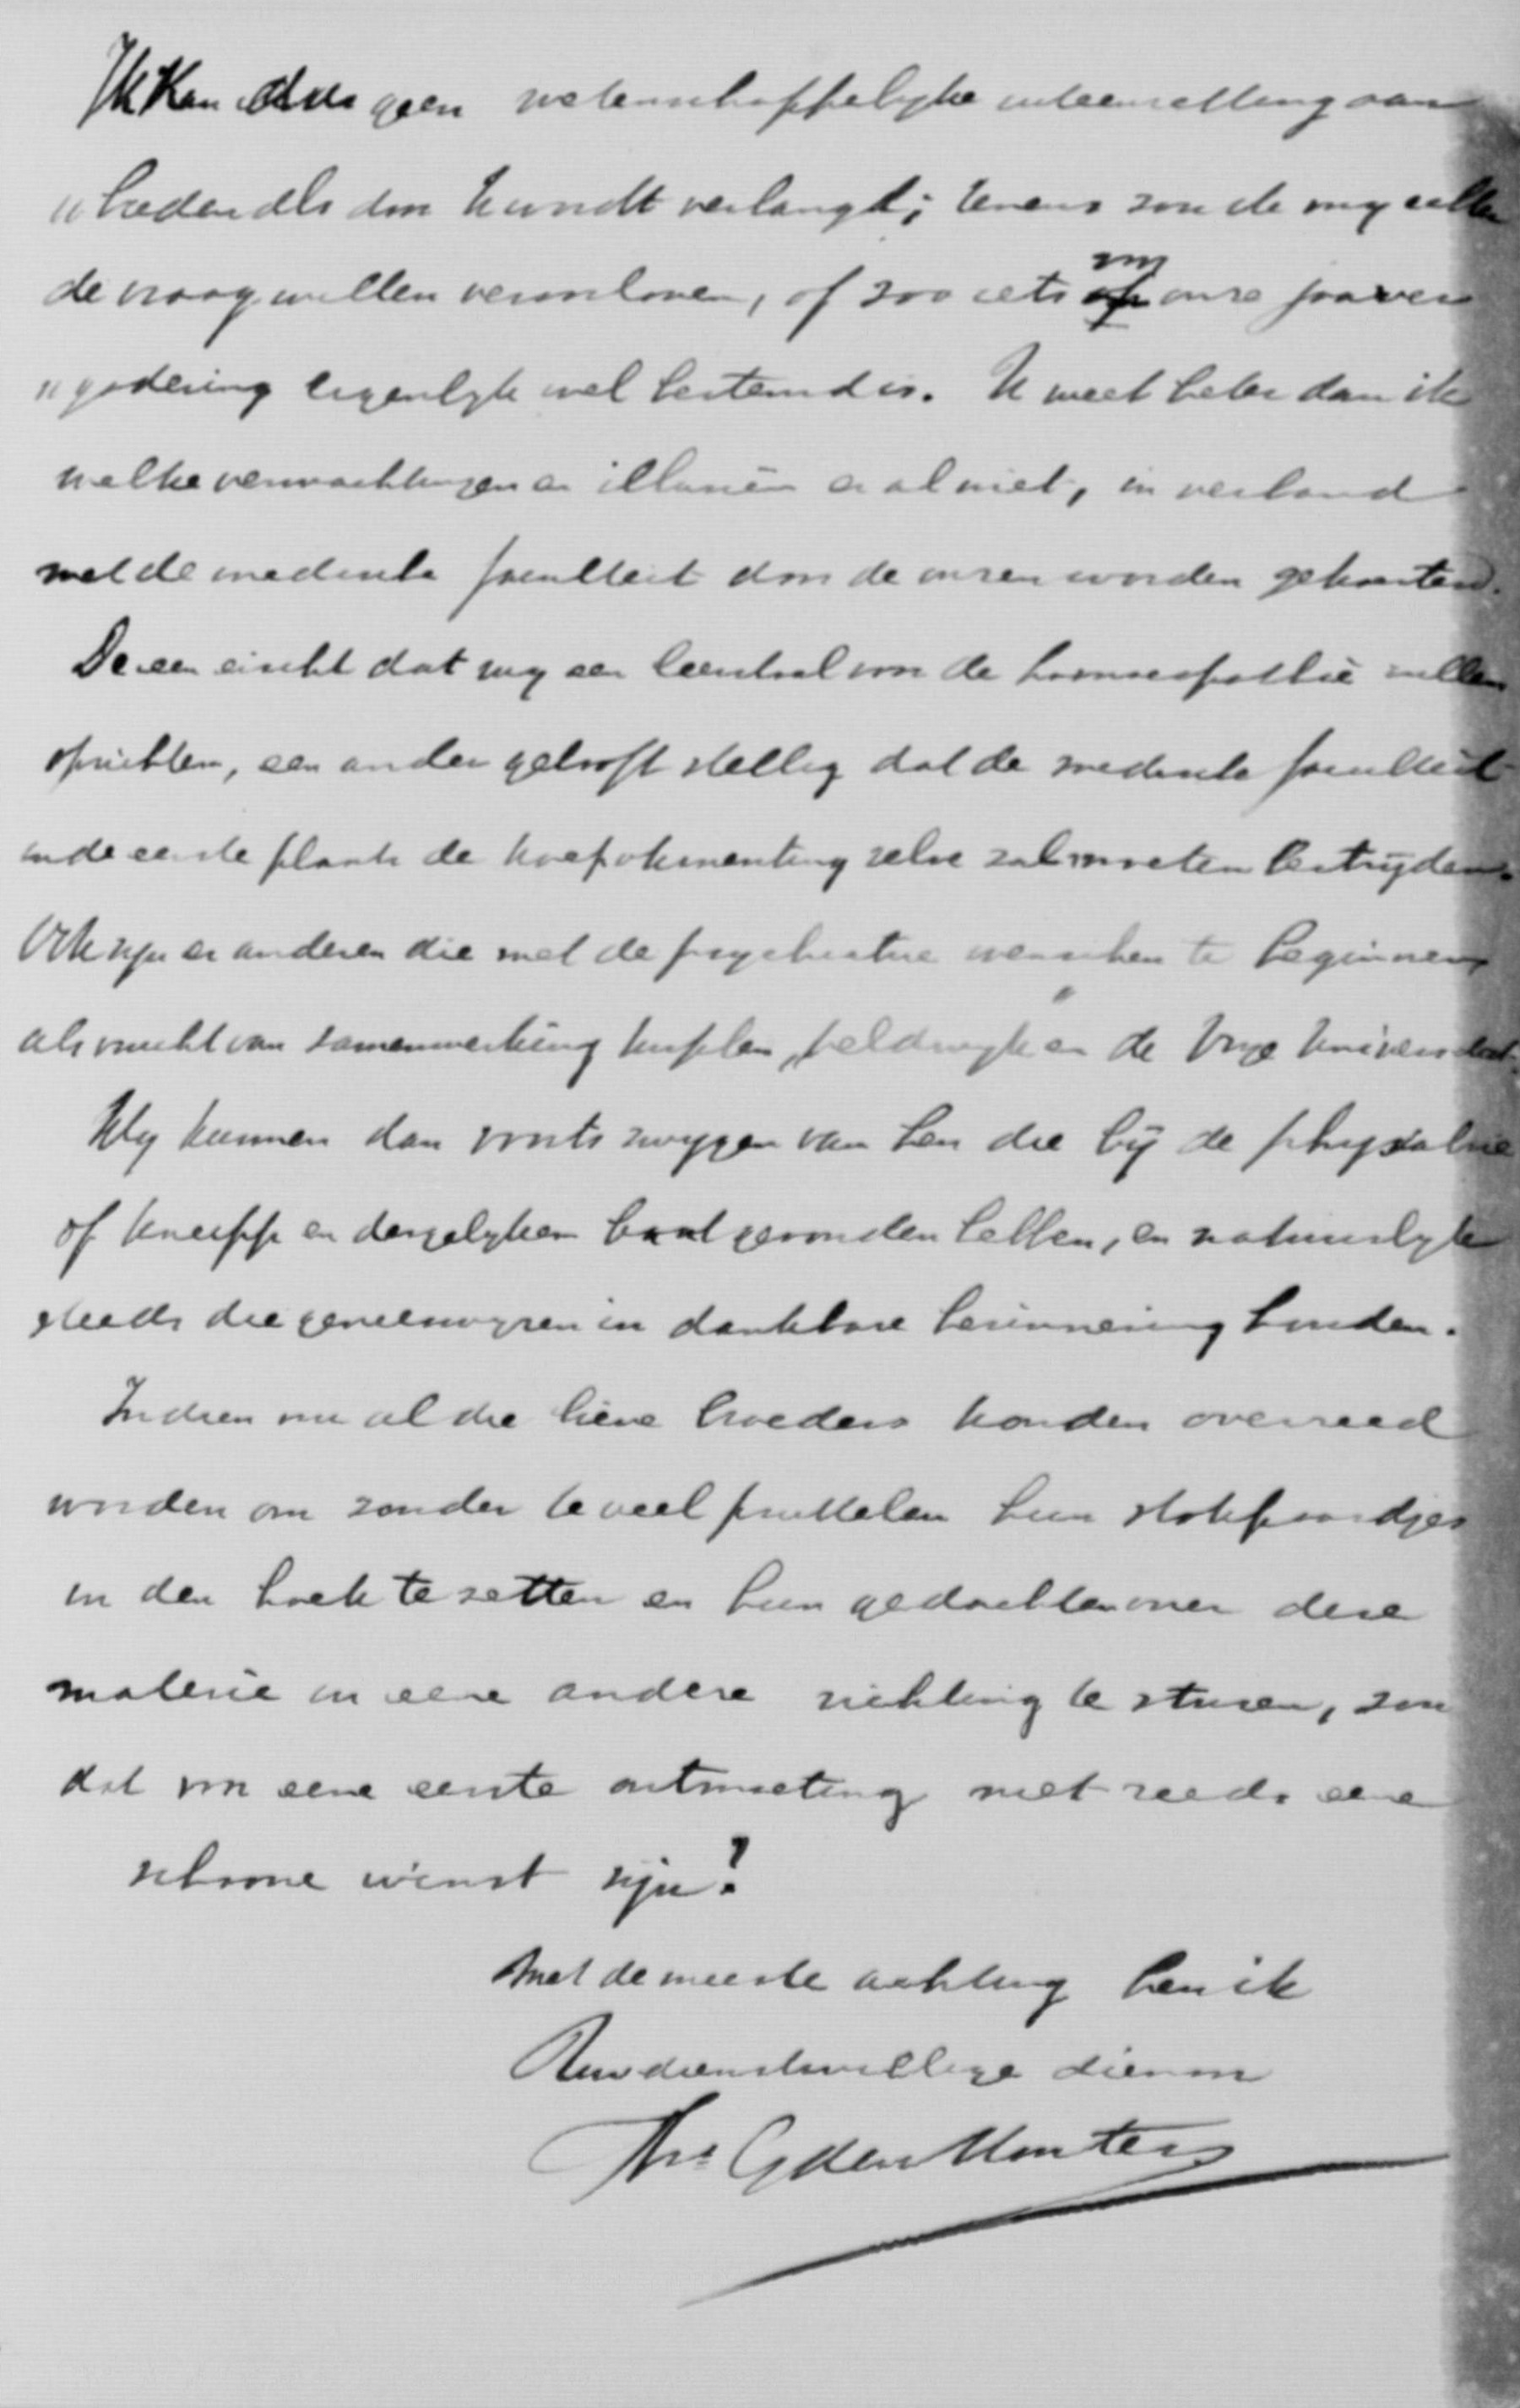 Ik kan dus geen wetenschappelyke uiteenzetting aan
"bieden als door U wordt verlangd; tevens zoude my willen
de vraag willen veroorloven, of zoo iets voor onze jaarver
"gadering eigenlyk wel bestemd is. U weet beter dan ik
welke verwachtingen en illusiën er al niet, in verband
met de medische faculteit door de onzen worden gekoesterd.
De een eischt dat wy een leerstoel voor de homoeopathie zullen
oprichten, een ander gelooft stellig dat de medische faculteit
in de eerste plaats de koepokinenting zelve zal moeten bestrijden.
Ook zijn er anderen die met de psychiatrie wenschen te beginnen
als vrucht van samenwerking tusschen "Veldwyk" en de Vrye Universiteit.
Wy kunnen dan voorts zwygen van hen die bij de physiatrie
of Kneipp en dergelyken baat gevonden hebben, en natuurlyk
steeds die geneeswyzen in dankbare herinnering houden.
Indien nu al die lieve broeders konden overreed
worden om zonder te veel pruttelen hun stokpaardjes
in den hoek te zetten en hun gedachten over deze
materie in eene andere richting te sturen, zou
dat voor eene eerste ontmoeting niet reeds eene
schoone winst zijn?
Met de meeste achting ben ik
Uw dienstwillige dienaar
den Houter